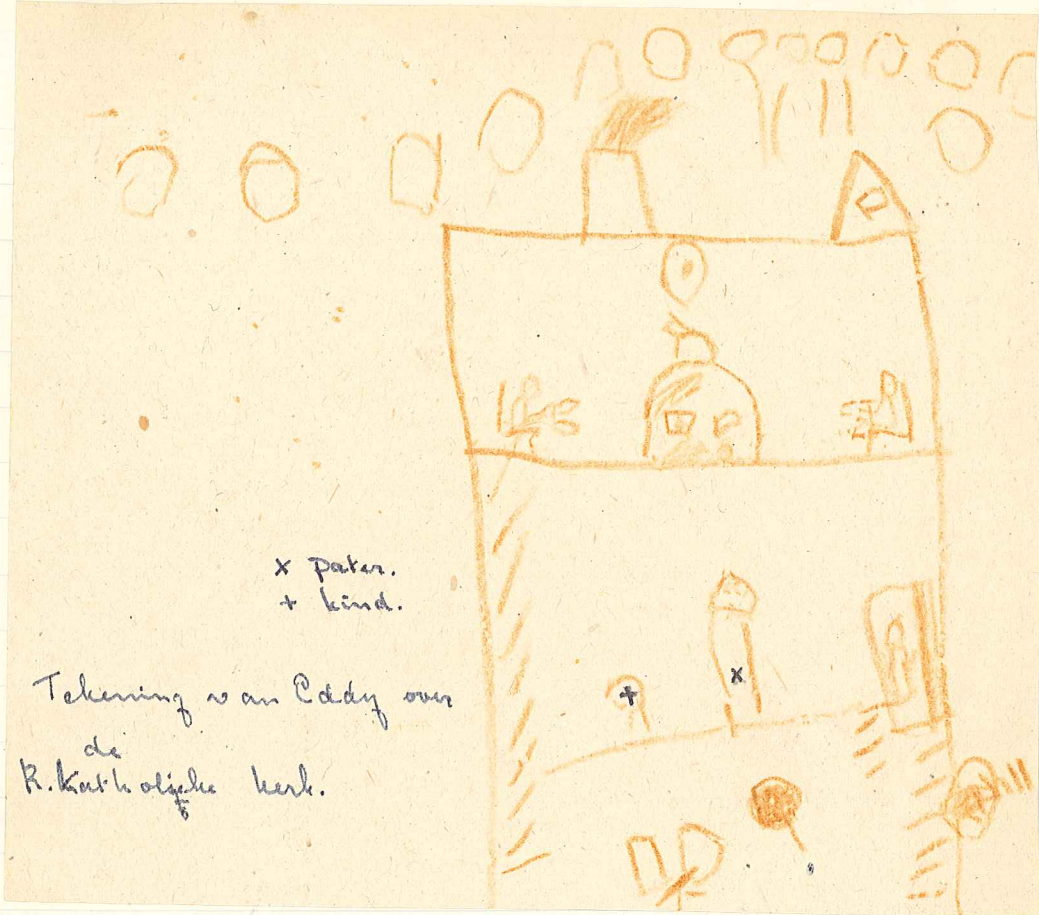 x pater.
+ kind.
Tekening van Eddy over
de
R. Katholijke kerk.
x
+